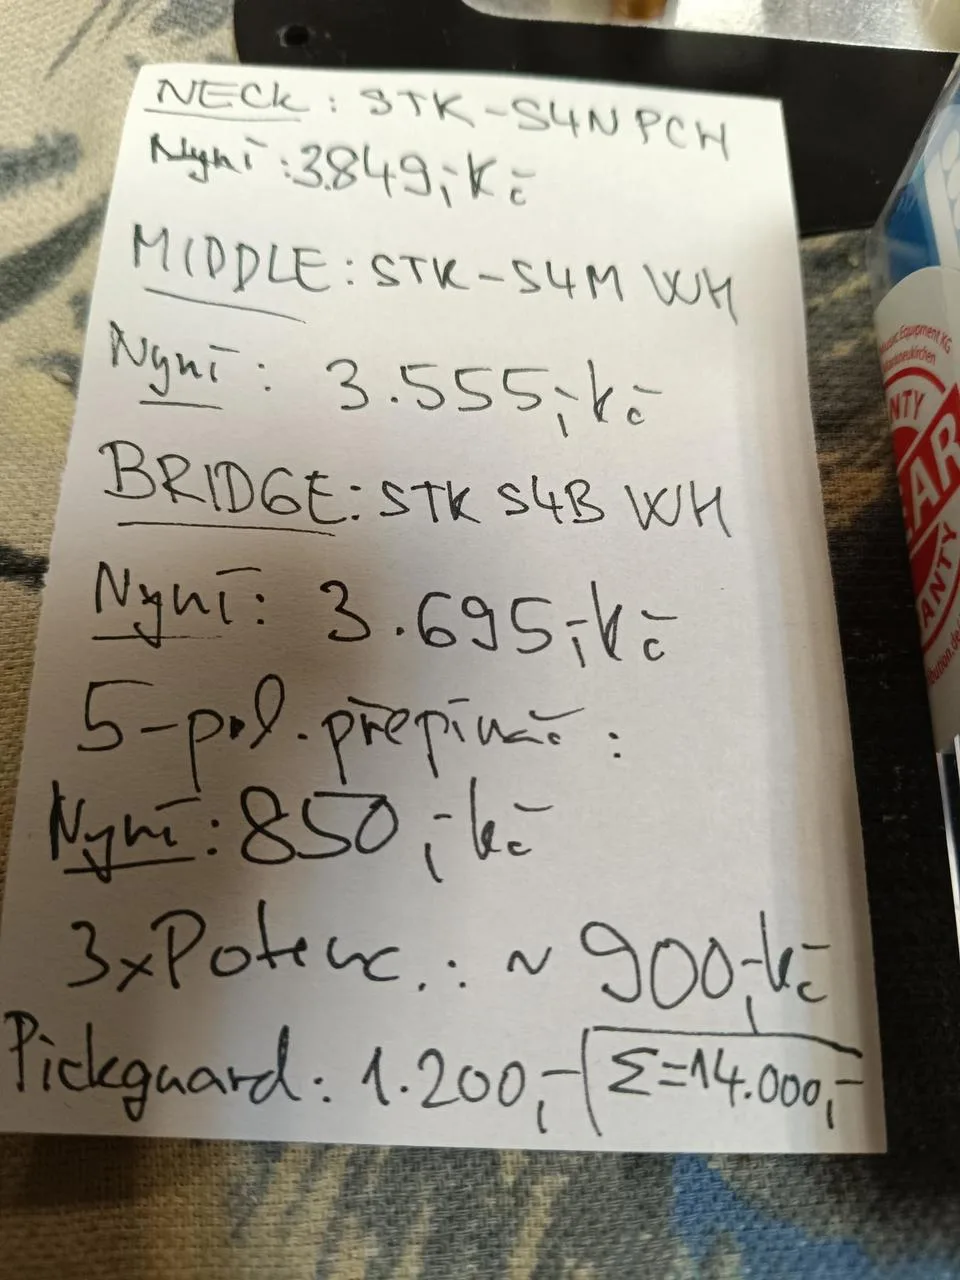 NECK: STK-S4N PCH
Nyní: 3.849,-Kč
MIDDLE: STK-S4M WH
Nyní: 3.555,-Kč
BRIDGE: STK S4B WH
Nyní: 3.695,-Kč
5-pol. přepínač:
Nyní: 850,-Kč
3xPotenc.: ~ 900,-Kč
Pickguard: 1.200,- Σ=14.000,-
Equipment KG
NTY
ANTY